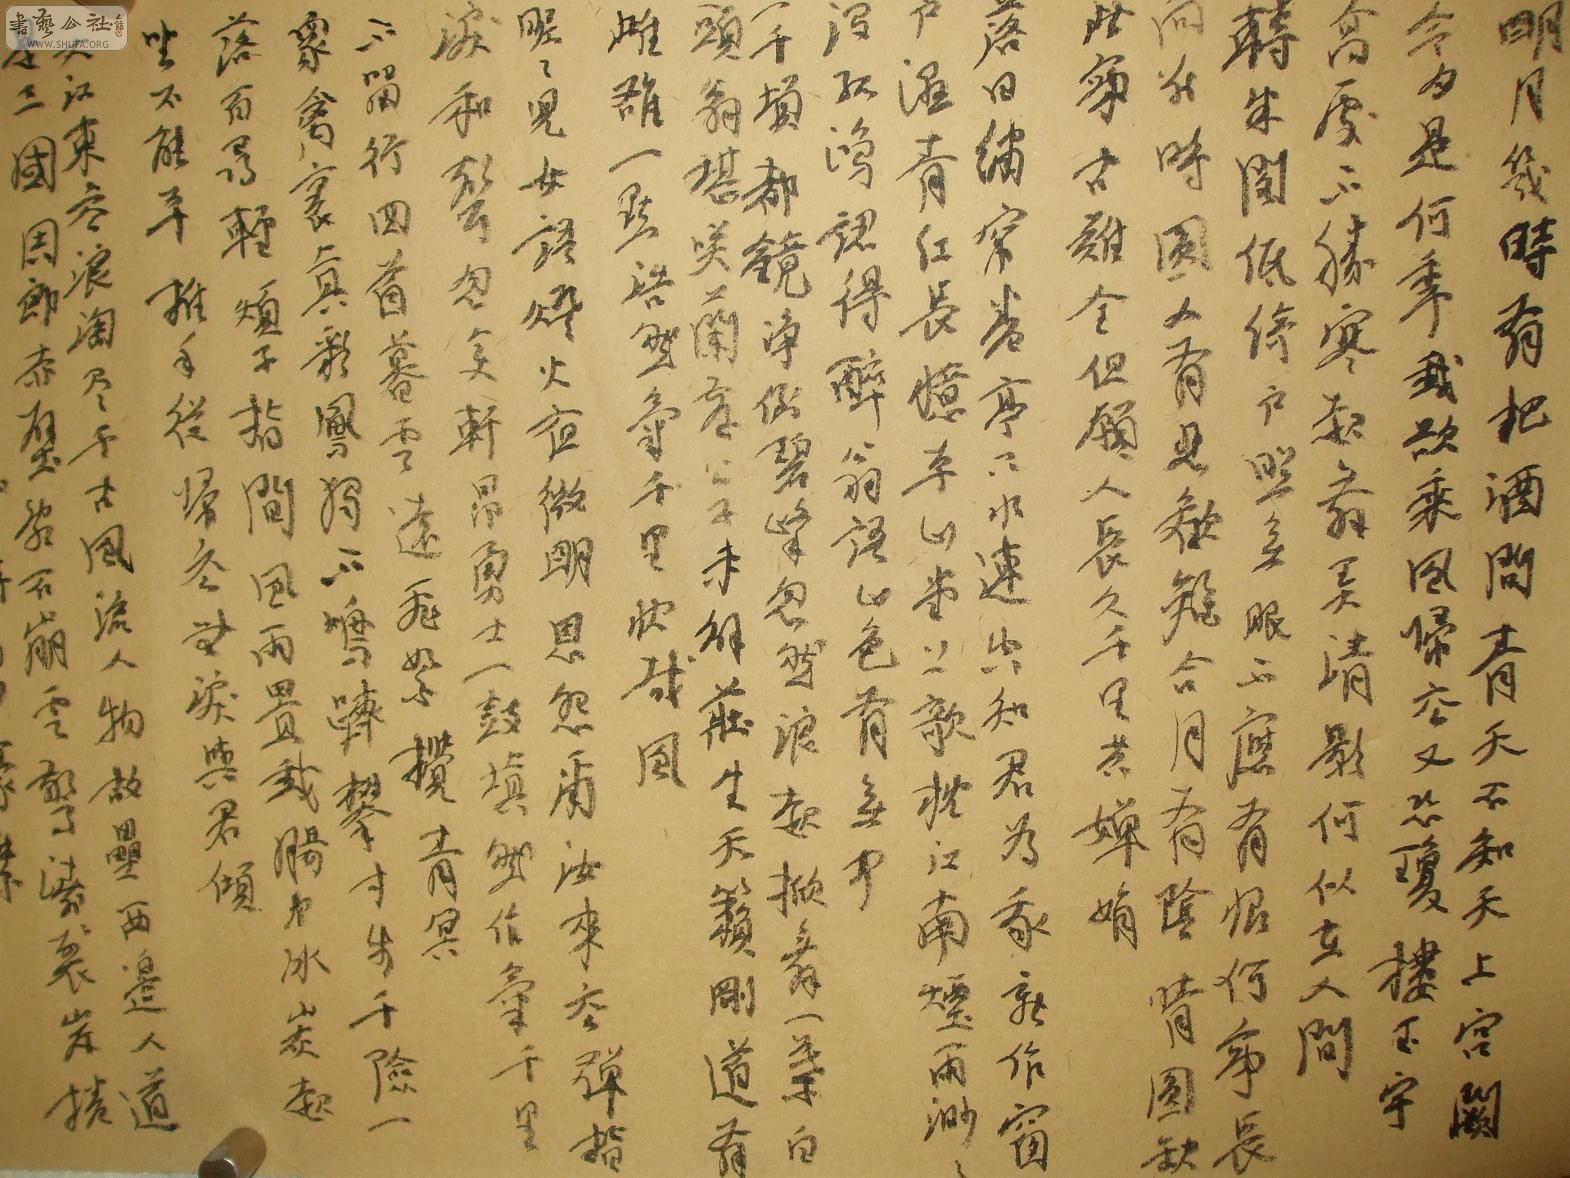 明月几時有把酒問青天不知天上宮闕
今夕是何年我欲乘風歸去又恐瓊樓玉宇
高處不勝寒起舞弄清影何似在人間
轉朱閣低綺戶照無眠不應有恨何事長
向別時圓人有悲歡離合月有陰晴圓缺
此事古難全但願人長久千里共嬋娟
落日繡簾卷亭下水連空知君為我新作窗
戶濕青紅長憶平山堂上欹枕江南煙雨渺〻
沒孤鴻認得醉翁語山色有無中
一千頃都鏡淨倒碧峰忽然浪起掀舞一葉白
頭翁堪笑蘭臺公子未解莊生天籟剛道有
雌雄一點浩然氣千里快哉風
昵〻兒女語燈火夜微明恩怨爾汝來去彈指
淚和聲忽變軒昂勇士一鼓填然作氣千里
不留行回首暮雲遠飛絮攪青冥
眾禽裏真彩鳳獨不鳴躋攀寸步千險一
落百尋輕煩子指間風雨置我腸中冰炭起
坐不能平推手從歸去無淚與君傾
大江東去浪淘盡千古風流人物故壘西邊人道
是三國周郎赤壁亂石崩雲驚濤裂岸捲
書藝公社
WWW.SHUFA.ORG